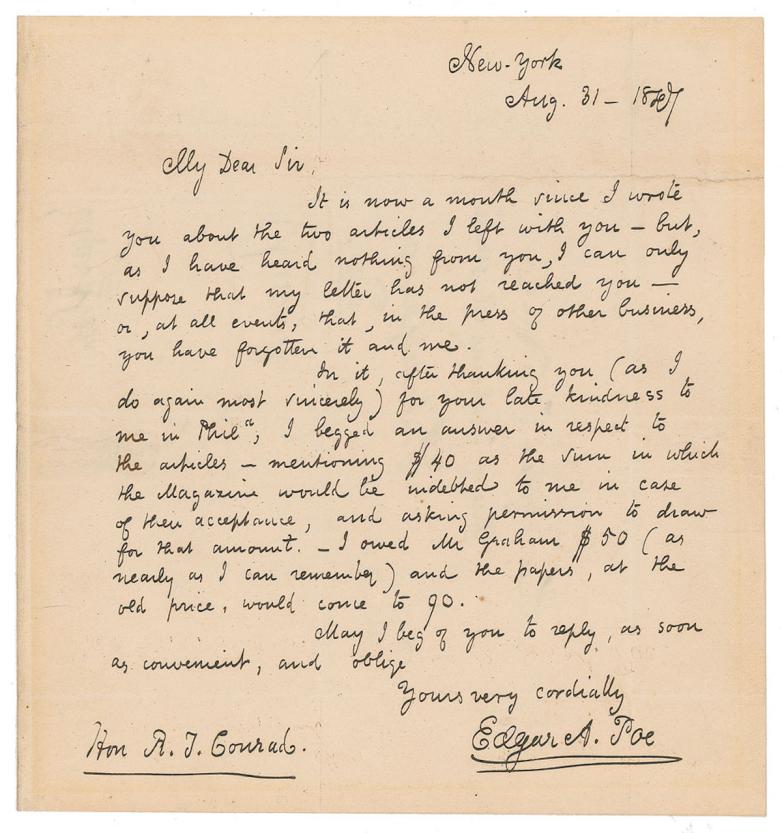 New-York
Aug. 31 – 1847
My Dear Sir,
It is now a month since I wrote
you about the two articles I left with you – but,
as I have heard nothing from you, I can only
suppose that my letter has not reached you —
or, at all events, that, in the press of other business,
you have forgotten it and me.
In it, after thanking you (as I
do again most sincerely) for your late kindness to
me in Philᵃ, I begged an answer in respect to
the articles – mentioning $40 as the sum in which
the Magazine would be indebted to me in case
of their acceptance, and asking permission to draw
for that amount. – I owed Mr Graham $50 (as
nearly as I can remember) and the papers, at the
old price, would come to 90.
May I beg of you to reply, as soon
as convenient, and oblige
Yours very cordially
Edgar A. Poe
Hon R. T. Conrad.